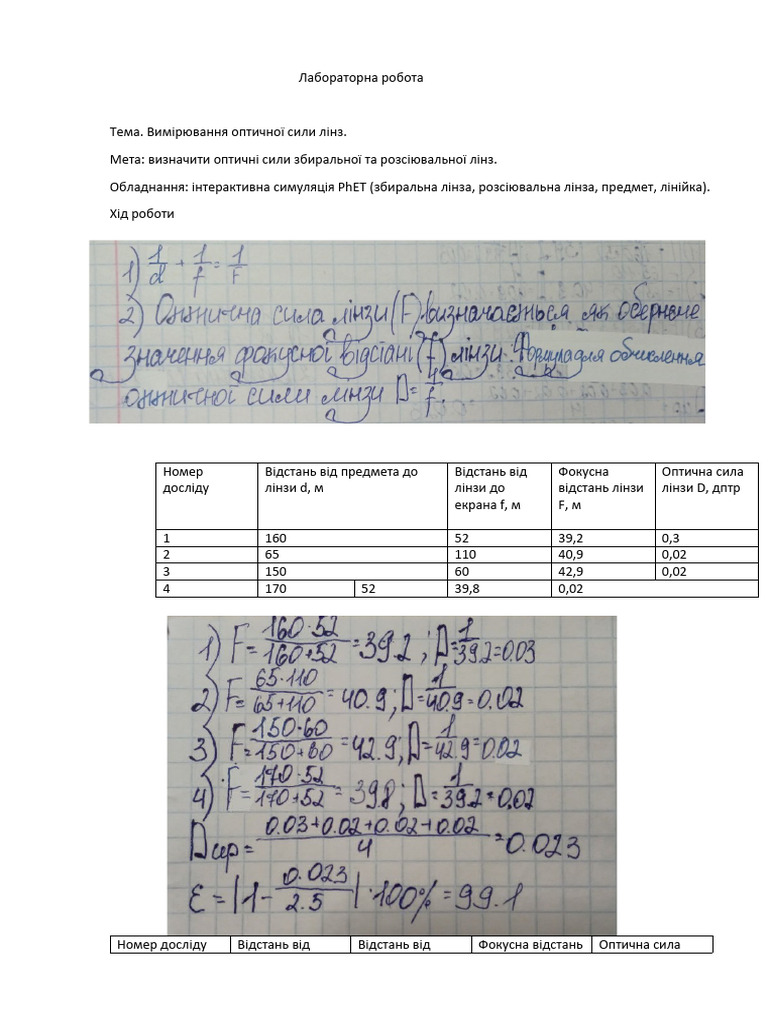 Лабораторна робота
Тема. Вимірювання оптичної сили лінз.
Мета: визначити оптичні сили збиральної та розсіювальної лінз.
Обладнання: інтерактивна симуляція PhET (збиральна лінза, розсіювальна лінза, предмет, лінійка).
Хід роботи
1) 1/d + 1/f = 1/F
2) Оптична сила лінзи (F) визначається як обернене
значення фокусної відстані (f) лінзи. Формула для обчислення
оптичної сили лінзи D = 1/f.
Номер досліду Відстань від предмета до лінзи d, м Відстань від лінзи до екрана f, м Фокусна відстань лінзи F, м Оптична сила лінзи D, дптр
1 160 52 39,2 0,3
2 65 110 40,9 0,02
3 150 60 42,9 0,02
4 170 52 39,8 0,02
1) F = 160·52/160+52 = 39.2 ; D = 1/39.2 = 0.03
2) F = 65·110/65+110 = 40.9 ; D = 1/40.9 = 0.02
3) F = 150·60/150+60 = 42.9 ; D = 1/42.9 = 0.02
4) F = 170·52/170+52 = 39.8 ; D = 1/39.2 = 0,02
Dср = 0.03+0.02+0.02+0.02/4 = 0.023
ε = |1 - 0.023/2.5| · 100% = 99.1
Номер досліду Відстань від Відстань від Фокусна відстань Оптична сила